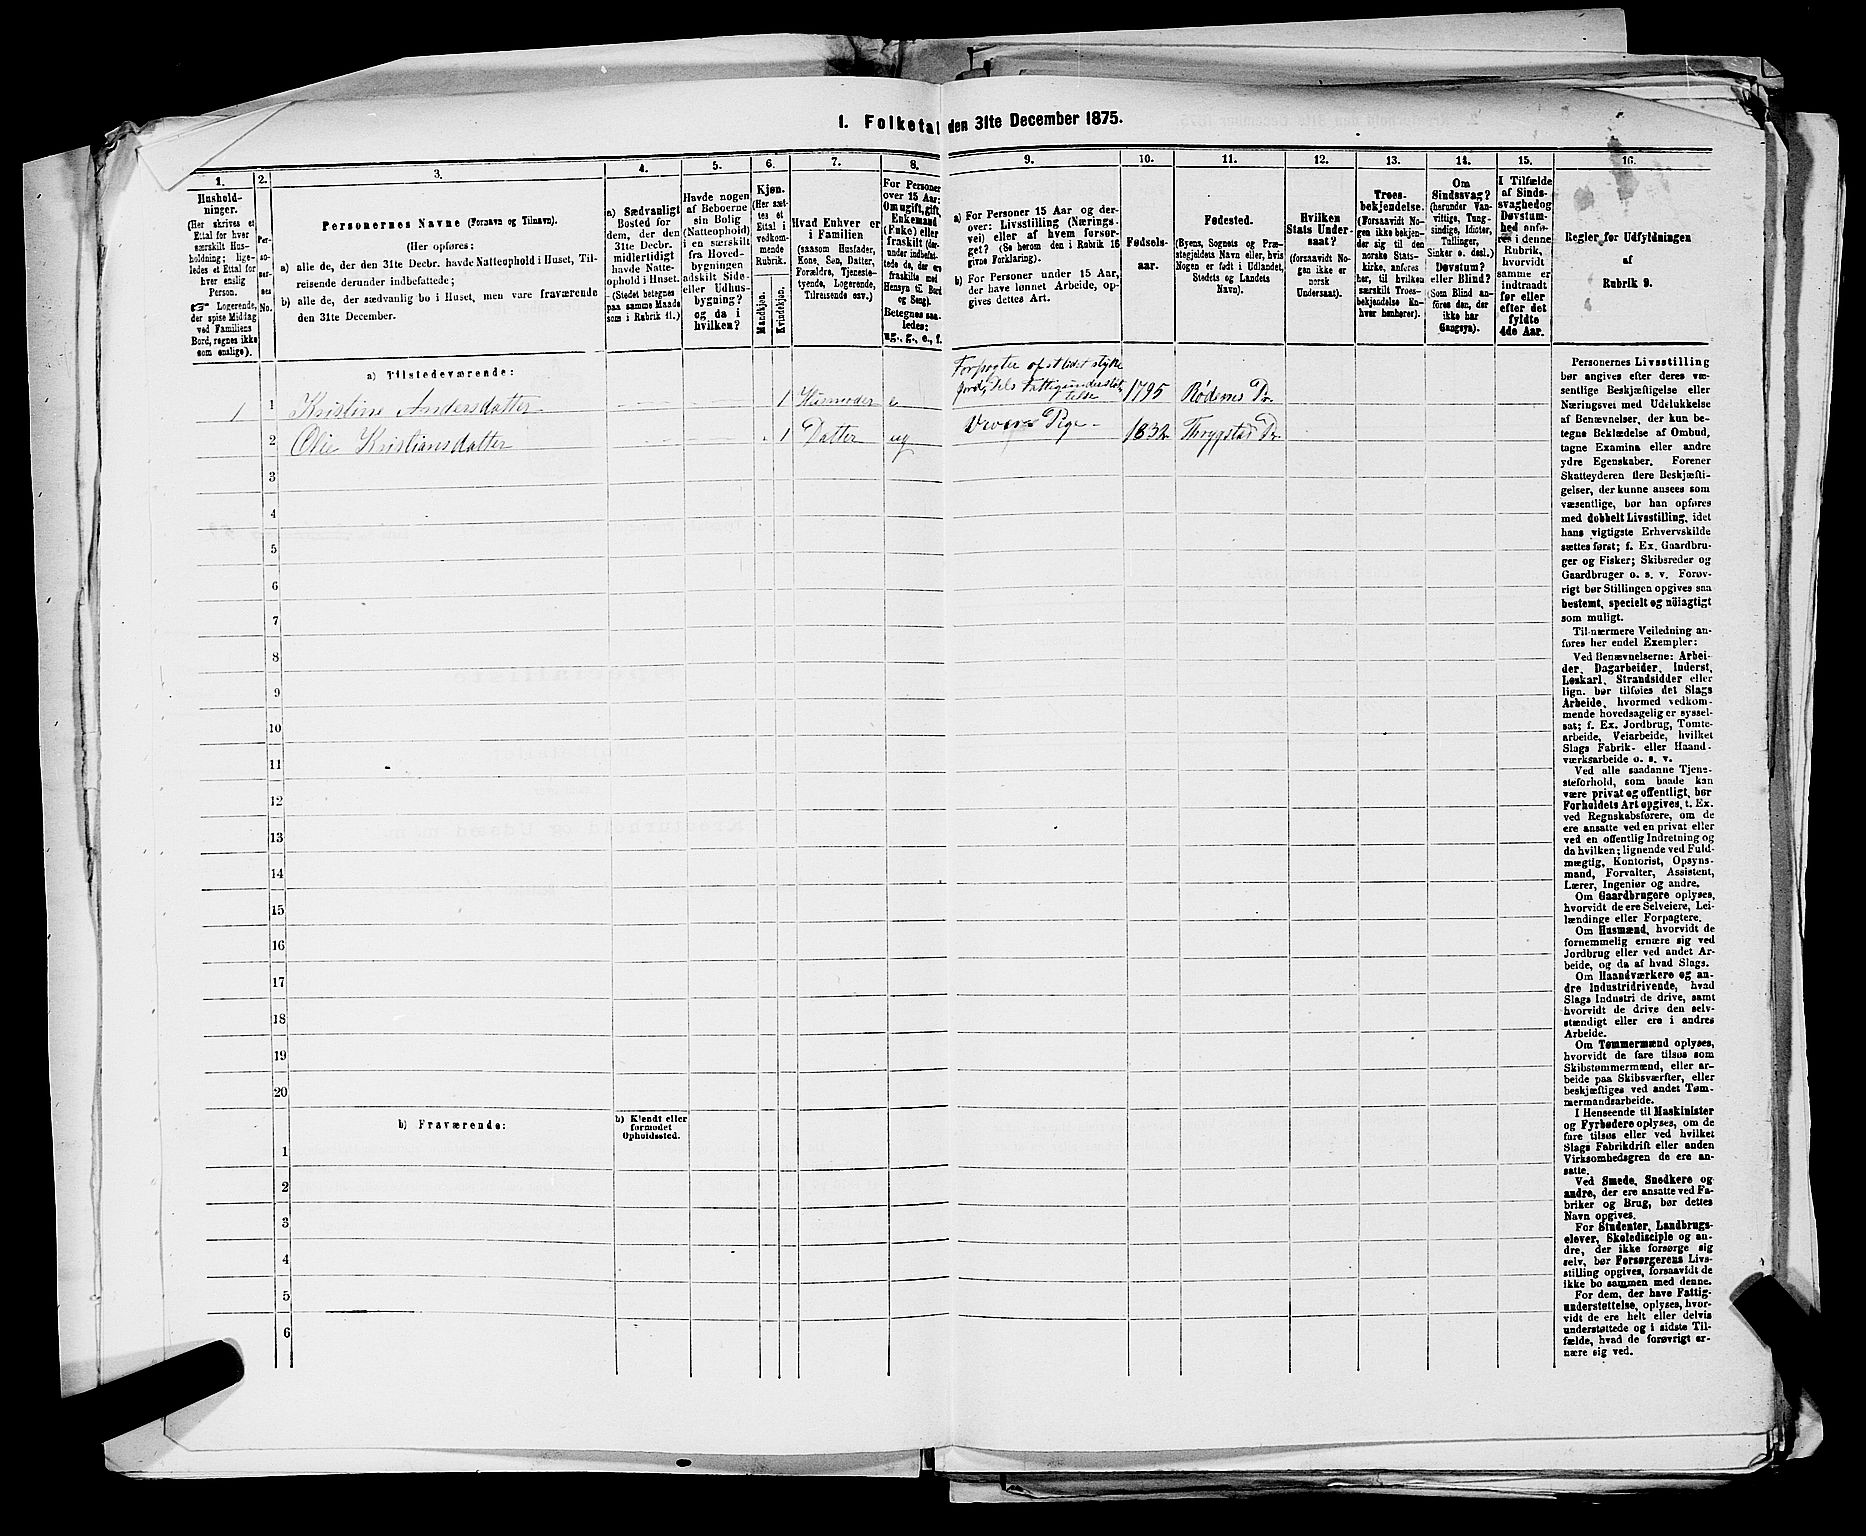 1. Folketal den 31te December 1875.
1.
Hushold-
ninger.
(Her skrives et
Ettal for hver
særskilt Hus-
holdning; lige-
ledes et Ettal for
hver enslig
Person.
Logerende,
der spise Middag
ved Familiens
Bord, regnes ikke
som enslige).
2.
Per-
so-
ner-
nes
No.
3.
Personernes Navne (Fornavn og Tilnavn).
(Her opføres:
a) alle de, der den 31te Decbr. havde Natteophold i Huset, Til-
reisende derunder indbefattede;
b) alle de, der sædvanlig bo i Huset, men vare fraværende
den 31te December.
4.
a) Sædvanligt
Bosted for
dem, der den
31te Decbr.
midlertidigt
havde Natte-
ophold i Huset.
(Stedet betegnes
paa samme Maade
som i Rubrik 11.)
5.
Havde nogen
af Beboerne
sin Bolig
(Natteophold)
i en særskilt
fra Hoved-
bygningen
adskilt Side-
eller Udhus-
bygning?
og da i
hvilken?
6.
Kjøn.
(Her sæt-
tes et
Ettal i
vedkom-
mende
Rubrik.
Mandkjøn.
Kvindekjøn.
7.
Hvad Enhver er
i Familien
(saasom Husfader,
Kone, Søn, Datter,
Forældre, Tjeneste-
tyende, Logerende,
Tilreisende osv.)
8.
For Personer
over 15 Aar:
Om ugift, gift,
Enkemand
(Enke) eller
fraskilt (der-
under indbefat-
tede de, der ere
fraskilte med
Hensyn til Bord
og Seng).
Betegnes saa-
ledes:
ug., g., e., f.
9.
a) For Personer 15 Aar og der-
over: Livsstilling (Nærings-
vei) eller af hvem forsør-
get? (Se herom den i Rubrik 16
givne Forklaring).
b) For Personer under 15 Aar,
der have lønnet Arbeide, op-
gives dettes Art.
10.
Fødsels-
aar.
11.
Fødested.
(Byens, Sognets og Præ-
stegjeldets Navn eller, hvis
Nogen er født i Udlandet,
Stedets og Landets
Navn).
12.
Hvilken
Stats Under-
saat?
(forsaavidt No-
gen ikke er
norsk
Undersaat).
13.
Troes-
bekjendelse.
(Forsaavidt No-
gen ikke bekjen-
der sig til den
norske Stats-
kirke, anføres
her, til hvilket
særskilt Troes-
bekjendelse En-
hver henhører).
14.
Om
Sindssvag?
(herunder Van-
vittige, Tung-
sindige, Idioter,
Tullinger,
Sinker o. desl.).
Døvstum?
eller Blind?
(Som Blind an-
føres den, der
ikke har
Gangsyn).
15.
I Tilfælde
af Sinds-
svaghed og
Døvstum-
hed anfø-
res i denne
Rubrik,
hvorvidt
samme er
indtraadt
før eller
efter det
fyldte
4de Aar.
16.
Regler for Udfyldningen
af
Rubrik 9.
a) Tilstedeværende:
1 1 Kristine Andersdatter 1 Husmoder e Forpagter af et lidet stykke jord, dels Fattigunderstøttelse 1795 Rødenes Pr.
2 Olie Kristiansdatter 1 Datter ug Pige 1832 Thrygstad Pr.
3
4
5
6
7
8
9
10
11
12
13
14
15
16
17
18
19
20
b) Fraværende:
b) Kjendt eller
formodet
Opholdssted.
1
2
3
4
5
6
Personernes Livsstilling
bør angives efter deres væ-
sentlige Beskjæftigelse eller
Næringsvei med Udelukkelse
af Benævnelser, der kun be-
tegne Beklædelse af Ombud,
tagne Examina eller andre
ydre Egenskaber. Forener
Skatteyderen flere Beskjæfti-
gelser, der kunne ansees som
væsentlige, bør han opføres
med dobbelt Livsstilling, idet
hans vigtigste Erhvervskilde
sættes først; f. Ex. Gaardbru-
ger og Fisker; Skibsreder og
Gaardbruger o. s. v. Forøv-
rigt bør Stillingen opgives saa
bestemt, specielt og nöiagtigt
som muligt.
Til nærmere Veiledning an-
føres her endel Exempler:
Ved Benævnelserne: Arbei-
der, Dagarbeider, Inderst,
Løskarl, Strandsidder eller
lign. bør tilføies det Slags
Arbeide, hvormed vedkom-
mende hovedsagelig er syssel-
sat; f. Ex. Jordbrug, Tomte-
arbeide, Veiarbeide, hvilket
Slags Fabrik- eller Haand-
værksarbeide o. s. v.
Ved alle saadanne Tjene-
steforhold, som baade kan
være privat og offentligt, bør
Forholdets Art opgives, t. Ex.
ved Regnskabsførere, om de
ere ansatte ved en privat eller
ved en offentlig Indretning og
da hvilken; lignende ved Fuld-
mægtig, Kontorist, Opsyns-
mand, Forvalter, Assistent,
Lærer, Ingeniør og andre.
Om Gaardbrugere oplyses,
hvorvidt de ere Selveiere, Lei-
lændinge eller Forpagtere.
Om Husmænd, hvorvidt de
fornemmelig ernære sig ved
Jordbrug eller ved andet Ar-
beide, og da af hvad Slags.
Om Haandværkere og an-
dre Industridrivende, hvad
Slags Industri de drive, samt
hvorvidt de drive den selv-
stændigt eller ere i andres
Arbeide.
Om Tømmermænd oplyses,
hvorvidt de fare tilsøs som
Skibstømmermænd, eller ar-
beide paa Skibsværfter, eller
beskjæftiges ved andet Tøm-
mermandsarbeide.
I Henseende til Maskinister
og Fyrbødere oplyses, om de
fare tilsøs eller ved hvilket
Slags Fabrikdrift eller anden
Virksomhedsgren de ere an-
satte.
Ved Smede, Snedkere og
andre, der ere ansatte ved Fa-
briker og Brug, bør dettes
Navn opgives.
For Studenter, Landbrugs-
elever, Skoledisciple og an-
dre, der ikke forsørge sig
selv, bør Forsørgerens Livs-
stilling opgives, forsaavidt de
ikke bo sammen med denne.
For dem, der have Fattig-
understøttelse, oplyses, hvor-
vidt de ere helt eller delvis
understøttede og i sidste Til-
fælde, hvad de forøvrigt er-
nære sig ved.